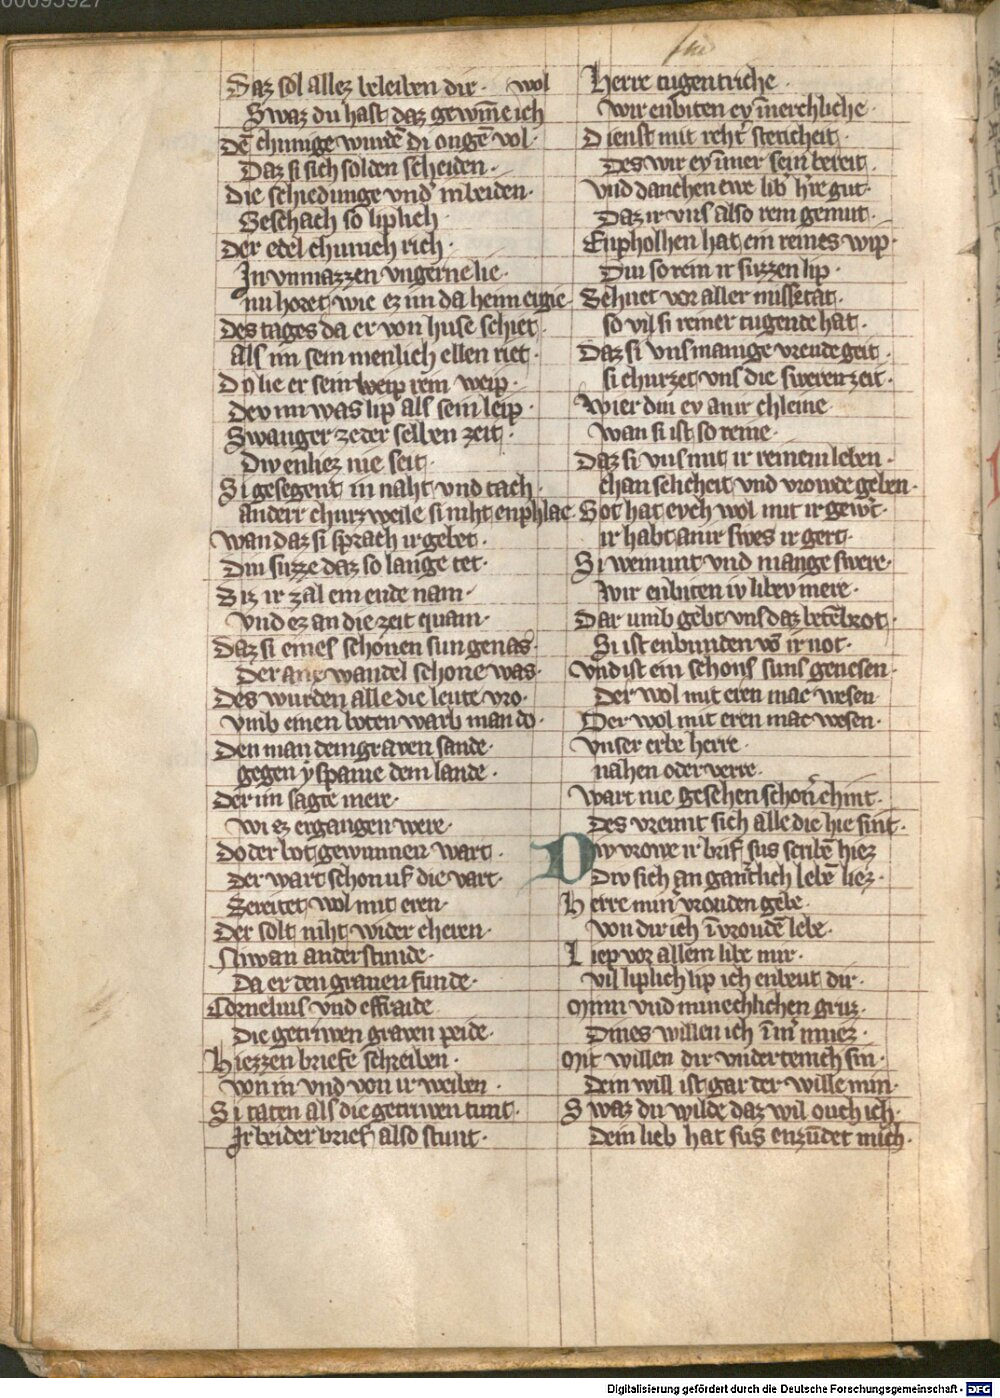 Daz sol allez beleiben dir · wol
Swaz du hast daz gewīne ich
Dē chunige wurdē di ongē vol ·
Daz si sich solden scheiden ·
Die schiedunge vnd̾ in beiden ·
Geschach so liplich
Der edel chunich rich ·
In vnmazzen vngerne lie ·
nu horet wie ez im da heim ergie
Des tages da er von huse schiet
Als im sein menlich ellen riet ·
Do lie er sein weip rein weip ·
Dev im was lip als sein leip ·
Swanger ze der selben zeit ·
Diw enliez nie seit
Si gesegent in naht vnd tach ·
anderr churzweile si niht enphlac
Wan daz si sprach ir gebet ·
Diu suzze daz so lange tet ·
Biz ir zal ein ende nam ·
Vnd ez an die zeit quam ·
Daz si eines schonen sun genas
Der ane wandel schone was ·
Des wurden alle die leute vro ·
Vmb einen boten warb man do ·
Den man dem graven sande ·
gegen yspanie dem lande ·
Der im sagte mere ·
wi ez ergangen were ·
Do der bot gewunnen wart ·
Der wart schon uf die vart ·
Bereitet wol mit eren ·
Der solt niht wider cheren ·
Niwan ander stunde ·
Da er den graven funde ·
Cornelius vnd effraide
Die getriwen graven peide ·
Hiezzen briefe schreiben ·
von in vnd von ir weiben ·
Si taten als die getriwen tunt ·
Ir beider brief also stunt ·
Herre tugentriche ·
wir enbiten ev īnerchliche ·
Dienst mit reht̾ steticheit ·
Des wir ev īmer sein bereit ·
Vnd danchen ewe lib̾ h̾re gut ·
Daz ir vns also rein gemut ·
Enpholhen hat ein reines wip ·
Diu so rein ir suzzen lip ·
Behuet vor aller missetat ·
so vil si reiner tugende hat ·
Daz si vns manige vreude geit ·
si churzet vns die sweren zeit ·
Wier din ev an ir chleine
wan si ist so reine ·
Daz si vns mit ir reinem leben ·
chan selicheit vnd vrowde geben ·
Got hat evch wol mit ir gew̾t ·
ir habt an ir swes ir gert ·
Si wemunt vnd mange swere ·
Wir enbiten iv libev mere ·
Dar umb gebt vns daz betēbrot
Si ist enbunden vō ir not ·
Vnd ist ein schons suns genesen ·
Der wol mit eren mac wesen
Der wol mit eren mac wesen ·
Vnser erbe herre ·
nahen oder verre ·
Wart nie gesehen schon̾ chint ·
Des vreunt sich alle die hie sint ·
Diy vrowe ir brif sus scribē hiez
Div sich an gantzlich lebē liez ·
Herre min̾ vrouden gebe ·
Von dir ich ī vroudē lebe ·
Liep vor allem libe mir ·
vil liplich lip ich enbeut dir ·
Minn vnd minechlichen gruz ·
Dines willen ich īm̾ muez ·
Mit willen dir vndertenich sin ·
Dein will ist gar der wille min ·
Swaz du wilde daz wil ouch ich ·
Dein lieb hat sus enzūdet mich ·
Digitalisierung gefördert durch die Deutsche Forschungsgemeinschaft - DFG